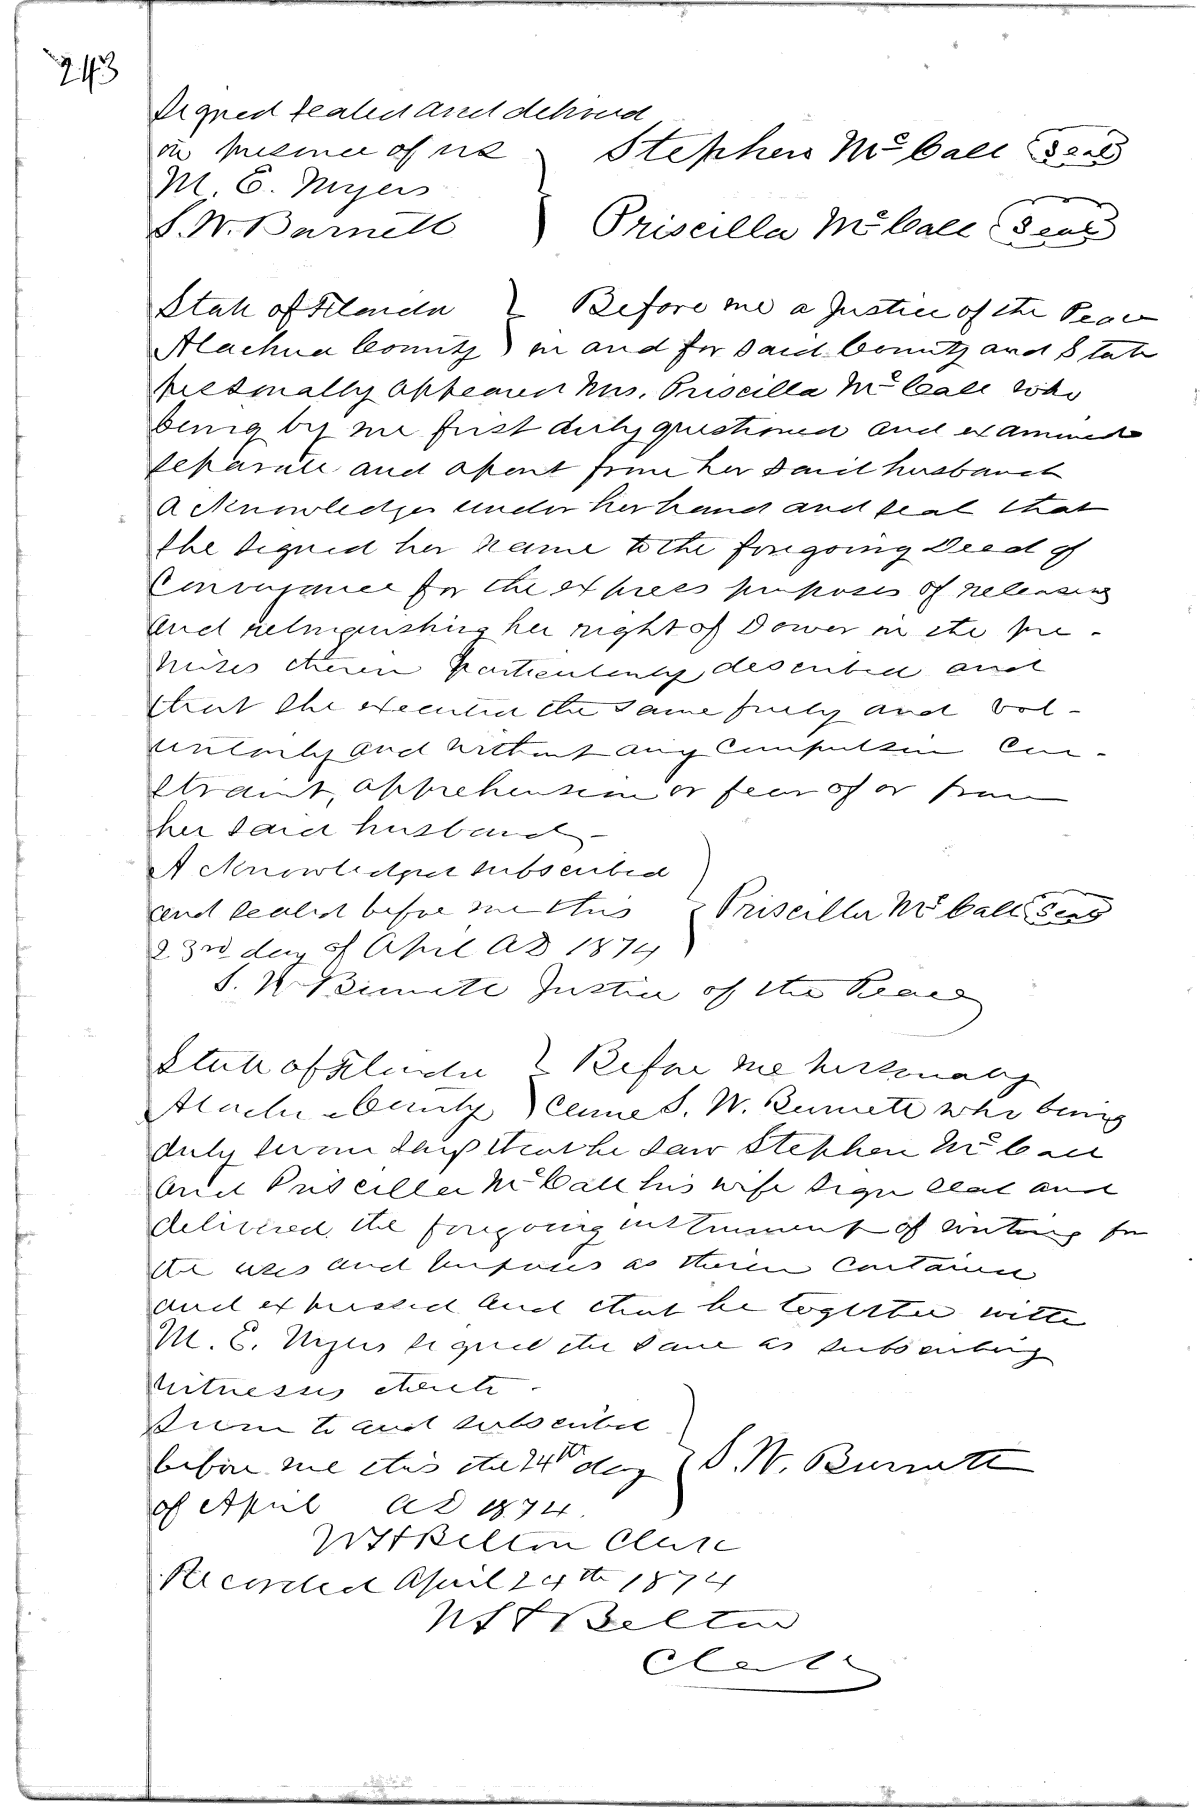 243
Signed sealed and delivered
in presence of us } Stephen McCall (Seal)
M. E. Myers
S. W. Barnett } Priscilla McCall (Seal)
State of Florida } Before me a Justice of the Peace
Alachua County ) in and for said County and State
personally appeared Mrs. Priscilla McCall who
being by me first duly questioned and examined
separate and apart from her said husband
acknowledges under her hand and seal that
she signed her name to the foregoing Deed of
Conveyance for the express purposes of releasing
and relinquishing her right of Dower in the pre-
mises therein particularly described and
that she executed the same freely and vol-
untarily and without any compulsion con-
straint, apprehension or fear of or from
her said husband -
Acknowledged subscribed
and sealed before me this } Priscilla McCall (Seal)
23rd day of April AD 1874
S. W. Burnett Justice of the Peace
State of Florida } Before me personally
Alachua County ) came S. W. Burnett who being
duly sworn says that he saw Stephen McCall
and Priscilla McCall his wife sign seal and
delivered the foregoing instrument of writing for
the uses and purposes as therein contained
and expressed and that he together with
M. E. Myers signed the same as subscribing
witnesses thereto.
Sworn to and subscribed
before me this the 24th day } S. W. Burnett
of April AD 1874.
W H Belton Clerk
Recorded April 24th 1874
W H Belton
Clerk